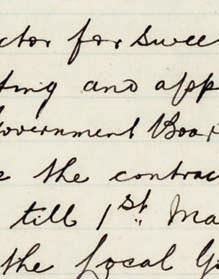 ctor for Swee
ting and app
Government Boar
e the contrac
till 1st Ma
the Local G